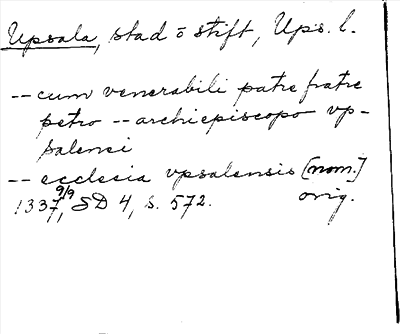 Upsala, stad o stift, Ups. l.
-- cum venerabili patre fratre
petro -- archiepiscopo vp-
salensi
-- ecclesia vpsalensis [nom.]
1337 9/9, SD 4, s. 572. orig.